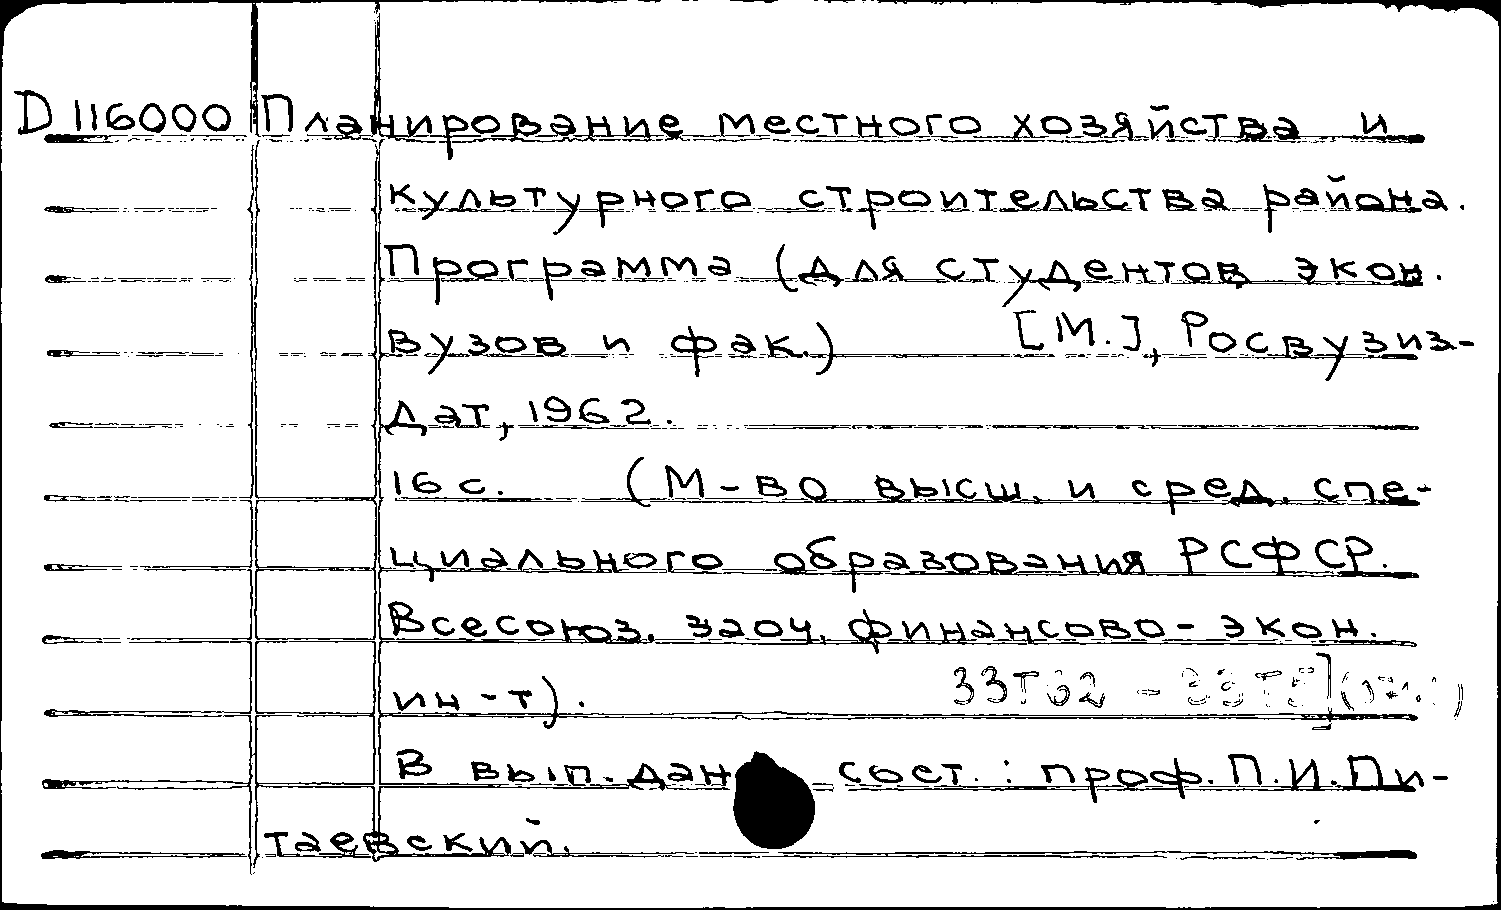 D 116000 Планирование местного хозяйства и
культурного строительства района.
Программа (для студентов экон.
вузов и фак.) [М.], Росвузиз-
дат, 1962.
16 с. (М-во высш. и сред. спе-
циального образования РСФСР.
Всесоюз. заоч. финансово-экон.
ин-т).
В вып. дан сост.: проф. П.И.Пи-
таевский.